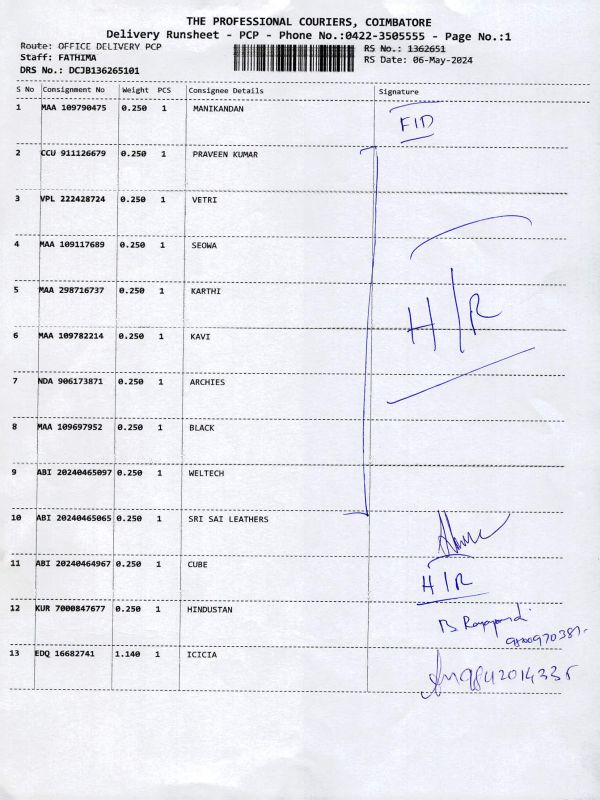 THE PROFESSIONAL COURIERS, COIMBATORE
Delivery Runsheet - PCP - Phone No.:0422-3505555 - Page No.:1
Route: OFFICE DELIVERY PCP
Staff: FATHIMA
DRS No.: DCJB136265101
RS No.: 1362651
RS Date: 06-May-2024
S No Consignment No Weight PCS Consignee Details Signature
1 MAA 109790475 0.250 1 MANIKANDAN FID
2 CCU 911126679 0.250 1 PRAVEEN KUMAR
3 VPL 222428724 0.250 1 VETRI
4 MAA 109117689 0.250 1 SEOWA
5 MAA 298716737 0.250 1 KARTHI H/R
6 MAA 109782214 0.250 1 KAVI
7 NDA 906173871 0.250 1 ARCHIES
8 MAA 109697952 0.250 1 BLACK
9 ABI 20240465097 0.250 1 WELTECH
10 ABI 20240465065 0.250 1 SRI SAI LEATHERS
11 ABI 20240464967 0.250 1 CUBE H/R
12 KUR 7000847677 0.250 1 HINDUSTAN
13 EDQ 16682741 1.140 1 ICICIA